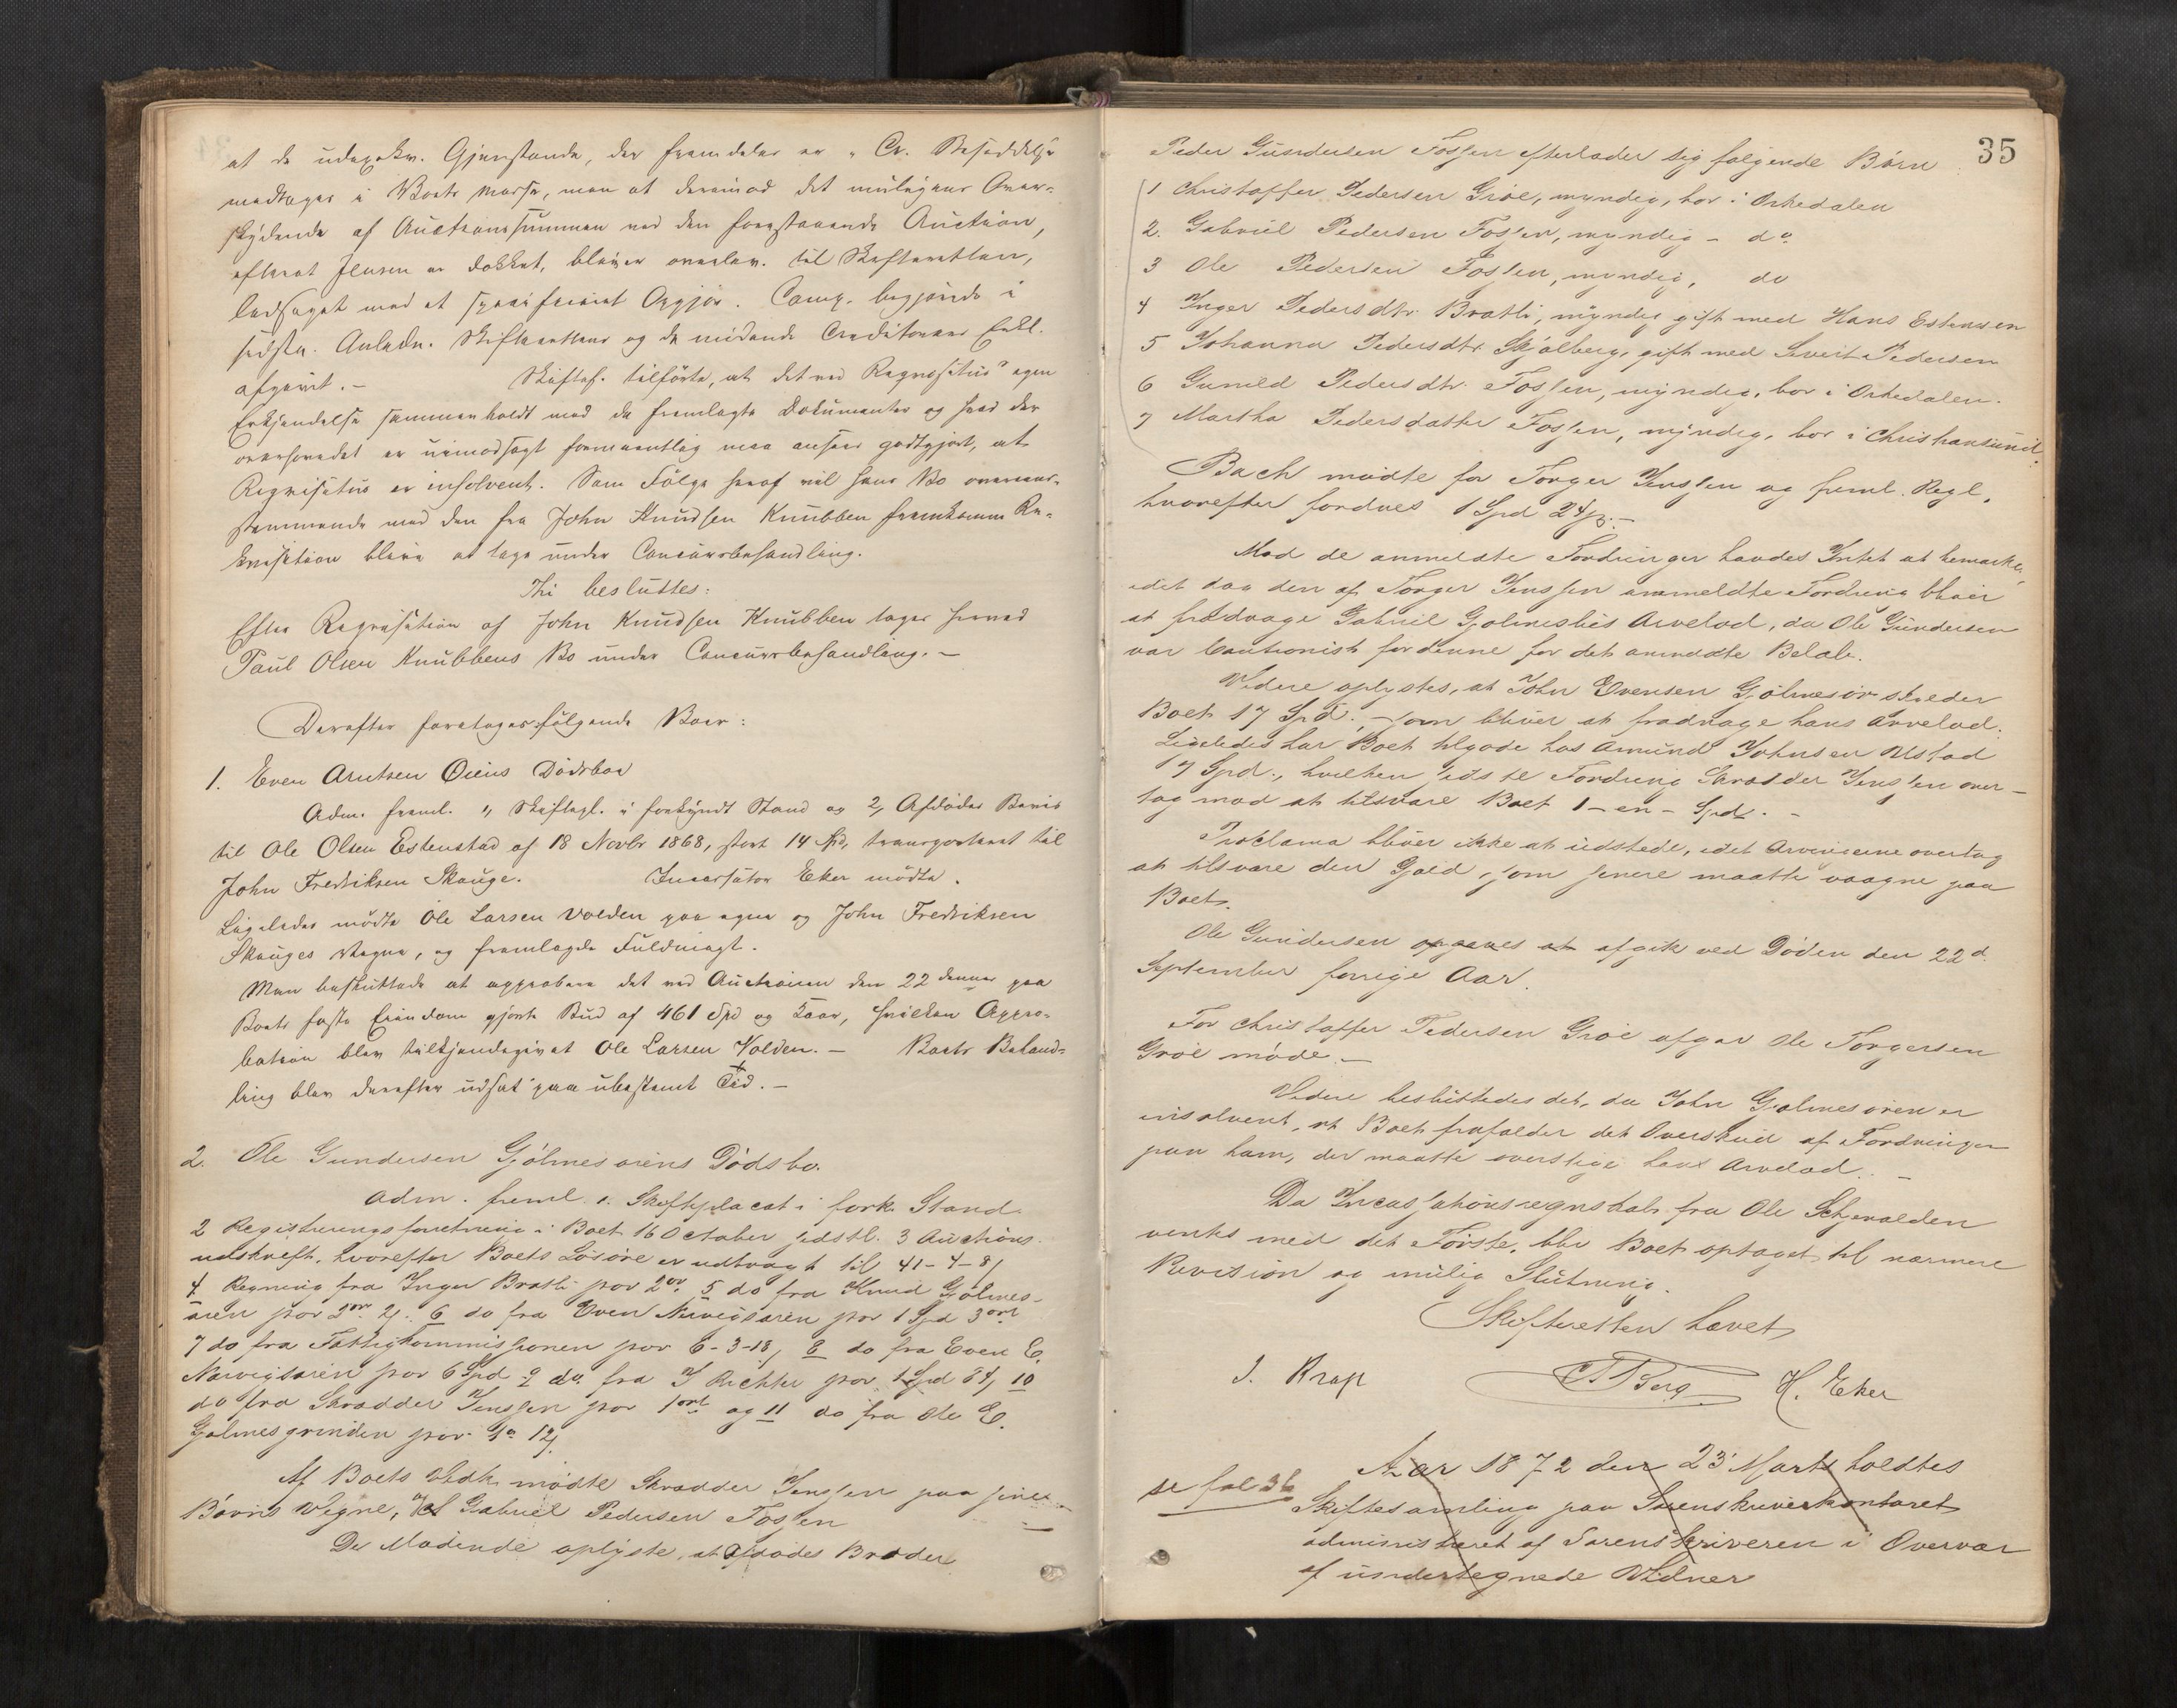 at de udexekv. Gjenstande, der fremdeles er i Cr. Besiddelse
modtages i Boets Masse, men at derimod det muligens Over-
skydende af Auctionssummen ved den forestaaende Auction,
efterat Jensen er dækket, bliver overlev. til Skifteretten,
ledsaget med et specificeret Opgjør. Comp. begjærede i
sidste Anledn. Skifterettens og de mødende Creditorers Erkl.
afgivet.- Skiftef. tilførte, at det ved Reqvisitus' egen
Erkjendelse sammenholdt med de fremlagte Dokumenter og hvad der
ovenhovedet er uimodsagt formeentlig maa ansees godtgjort, at
Reqvisitus er insolvent. Som Følge heraf vil hans Bo overeens-
stemmende med den fra John Knudsen Knubben fremkomne Re-
kvisition blive at tage under Concursbehandling.
Thi besluttes:
Efter Reqvisition af John Knudsen Knubben tages herved
Paul Olsen Knubbens Bo under Concursbehandling.-
Derefter foretoges følgende Boer:
1. Even Arntsen Øiens Dødsbo
Adm. freml. 1, Skiftepl. i forkyndt Stand og 2, Afdødes Beviis
til Ole Olsen Estenstad af 18 Novbr 1868, stort 14 Spd, transporteret til
John Fredriksen Skauge. Incassator Eker mødte.
Ligeledes mødte Ole Larsen Volden paa egne og John Fredriksen
Skauges Vegne, og fremlagde Fuldmagt.
Man besluttede at approbere det ved Auctionen den 22 denne paa
Boets faste Eiendom gjorte Bud af 461 Spd og Kaar, hvilken Appro-
bation blev tilkjendegivet Ole Larsen Volden.- Boets Behand-
ling blev derefter udsat paa ubestemt Tid.-
2. Ole Gundersen Gjølmesørens Dødsbo.
Adm. freml. 1. Skifteplacat i fork. Stand
2 Registreringsforretning i Boet 16 October sidstl. 3 Auctions-
udskrift, hvorefter Boets Løsøre er udbragt til 41-4-8,
4 Regning fra Inger Bratli por 2 or. 5 do fra Knud Gølmes-
øren por 2 or 21. 6 do fra Even Nervigsøren por 1 Spd 3 ort
7 do fra Fattigkommissionen por 6-3-18, 8 do fra Even E.
Narvigsøren por 6 Spd 9 do fra J Richter por 1 Spd 84, 10
do fra Skrædder Jenssen por 1 ort og 11 do fra Ole E.
Gølmesgrinden por 12
Af Boets Vedk. mødte Skrædder Jenssen paa sine
Børns Vegne, Gabriel Pedersen Fossen
De Mødende oplyste, at Afdødes Broder
35
Peder Gundersen Fossen efterlader sig følgende Børn
1 Christoffer Pedersen Groe, myndig, bor i Orkedalen
2. Gabriel Pedersen Fossen, myndig - do
3 Ole Pedersen Fossen, myndig, do
4 Inger Pedersdtr Bratli, myndig gift med Hans Estensen
5 Johanna Pedersdtr Skjølberg, gift med Sivert Pedersen
6 Gunild Pedersdtr Fossen, myndig, bor i Orkedalen.
7 Martha Pedersdatter Fossen, myndig, bor i Christiansund.
Bach mødte for Torger Jenssen og freml. Regl,
hvorefter fordres 1 Spd 24 s.-
Mod de anmeldte Fordringer havdes Intet at bemærke,
idet dog den af Torger Jenssen anmeldte Fordring bliver
at fradrage Gabriel Gjølmeslies Arvelod, da Ole Gundersen
var Cautionist for denne for det anmeldte Beløb.
Videre oplystes, at John Evensen Gjølmesør skylder
Boet 17 Spd. - som bliver at fradrage hans Arvelod.
Ligeledes har Boet tilgode hos Amund Johnsen Ustad
17 Spd., hvilken sidste Fordring Skrædder Jenssen over-
tog mod at tilsvare Boet 1 - en - Spd. -
Proclama bliver ikke at udstede, idet Arvingerne overtog
at tilsvare den Gjæld, som senere maatte vaagne paa
Boet.
Ole Gundersen opgaves at afgik ved Døden den 22d
September forrige Aar.
For Christoffer Pedersen Groe afgav Ole Torgersen
Groe møde.-
Videre besluttedes det, da John Gjølmesøren er
insolvent, at Boet frafalder det Overskud af Fordringen
paa ham, der maatte overstige hans Arvelod.-
Da Incassationsregnskab fra Ole Schjevolden
ventes med det Første, blev Boet optaget til nærmere
Revision og mulig Slutning.
Skifteretten hævet
J. Krop T Berg H. Eker
se fol 36
Aar 1872 den 23 Marts holdtes
Skiftesamling paa Sorenskriverkontoret
administreret af Sorenskriveren i Overvær
af undertegnede Vidner